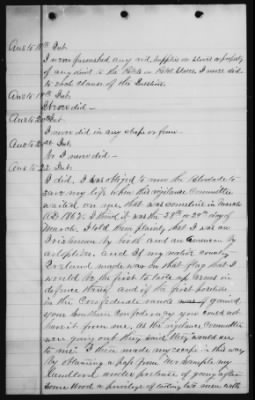 Ans to 18th Int.
I never furnished any aid, supplies or stores or property
of any kind to the Rebels or Rebel States. I never did
to each clause of the Question.
Ans to 19th Int.
I never did —
Ans to 20th Int.
I never did in any shape or form.
Ans to 21st Int.
No I never did —
Ans to 22 Int.
I did, I was obliged to run the blockade to
save my life when the vigilance Committee
waited on me, that was sometime in March
A.D. 1862. I think it was the 28th or 29th day of
March. I told them plainly that I was an
Irishman by birth and an American by
adoption. And if my native country
Ireland made war on that flag that I
would be the first to take up arms in
defence and if the first position
in the Confederate ranks gained
your Southern Confederacy you could not
have it from me, as the vigilance Committee
were going out they said they would see
to me. I then made my escape in this way
by obtaining a pass from
Landlord under pretence of going after
some Wood a privilege of taking two men with